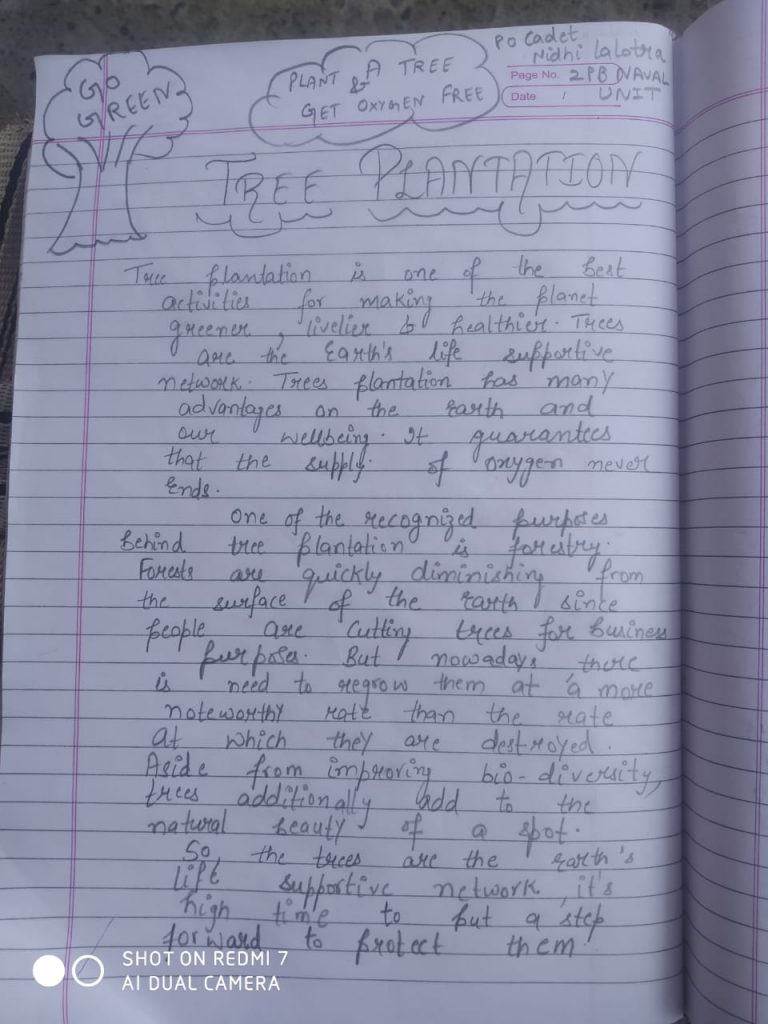 GO
GREEN
PLANT A TREE
&
GET OXYGEN FREE
PO Cadet
Nidhi Lalotra
Page No. 2PB NAVAL
Date / UNIT
TREE PLANTATION
Tree plantation is one of the best
activities for making the planet
greener, livelier & healthier. Trees
are the Earth's life supportive
network. Trees plantation has many
advantages on the Earth and
our wellbeing. It guarantees
that the supply. of oxygen never
Ends.
One of the recognized purposes
Behind tree plantation is forestry.
Forests are quickly diminishing from
the surface of the Earth since
people are cutting trees for Business
purposes. But nowadays, there
is need to regrow them at a more
noteworthy rate than the rate
at which they are destroyed.
Aside from improving bio-diversity,
trees additionally add to the
natural beauty of a spot.
So, the trees are the Earth's
life supportive network, it's
high time to put a step
forward to protect them
SHOT ON REDMI 7
AI DUAL CAMERA